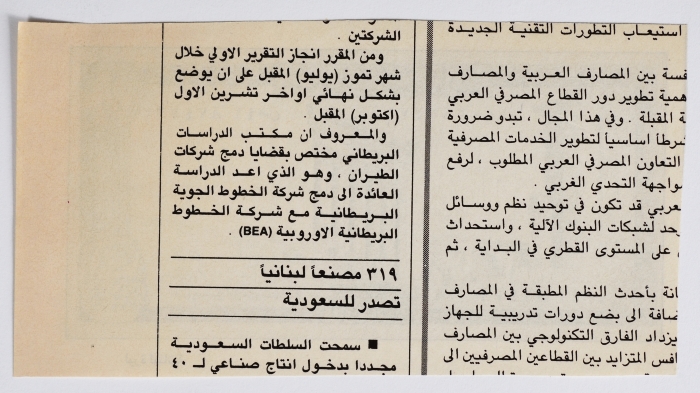 استيعاب التطورات التقنية الجديدة
فسة بين المصارف العربية والمصارف
همية تطوير دور القطاع المصرفي العربي
ة المقبلة . وفي هذا المجال ، تبدو ضرورة
شرطا اساسياً لتطوير الخدمات المصرفية
التعاون المصرفي العربي المطلوب ، لرفع
مواجهة التحدي الغربي .
عربي قد تكون في توحيد نظم ووسائل
حد لشبكات البنوك الآلية ، واستحداث
، على المستوى القطري في البداية ، ثم
انة بأحدث النظم المطبقة في المصارف
ضافة الى بضع دورات تدريبية للجهاز
يزداد الفارق التكنولوجي بين المصارف
افس المتزايد بين القطاعين المصرفيين الى
الشركتين .
ومن المقرر انجاز التقرير الاولي خلال
شهر تموز (يوليو) المقبل على ان يوضع
بشكل نهائي اواخر تشرين الاول
(اكتوبر) المقبل .
والمعروف ان مكتب الدراسات
البريطاني مختص بقضايا دمج شركات
الطيران ، وهو الذي اعد الدراسة
العائدة الى دمج شركة الخطوط الجوية
البريطانية مع شركة الخطوط
البريطانية الاوروبية (BEA) .
٣١٩ مصنعاً لبنانياً
تصدر للسعودية
■ سمحت السلطات السعودية
مجددا بدخول انتاج صناعي لـ ٤٠